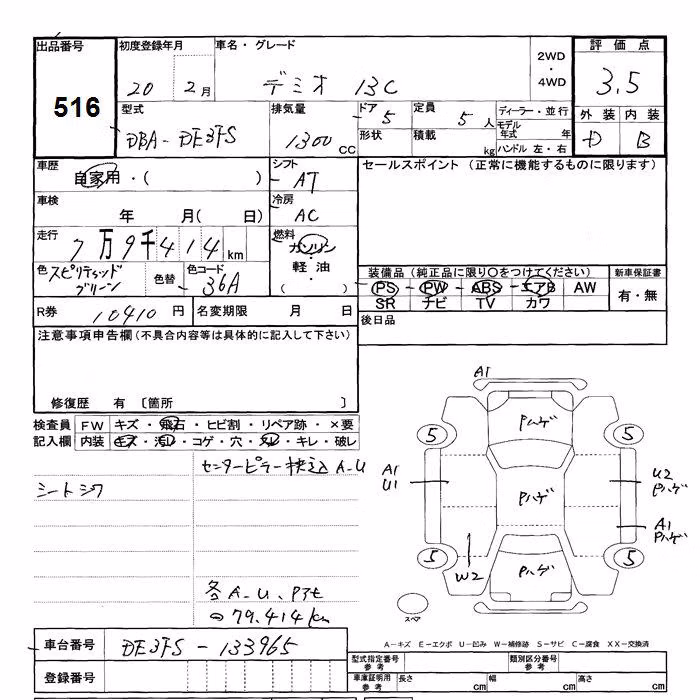 出品番号
516
初度登録年月
20 2月
車名・グレード
デミオ 13C
2WD
・
4WD
評価点
3.5
外装 内装
D B
型式
DBA-DE3FS
排気量
1300 CC
ドア
5
定員
5人
形状
積載
kg
ディーラー・並行
モデル年式 年
ハンドル 左・右
車歴
自家用・( )
シフト
AT
セールスポイント (正常に機能するものに限ります)
車検
年 月( 日)
冷房
AC
走行
7万9千414km
燃料
ガソリン
・
軽油
( )
色
スピリテッドグリーン
色替
色コード
36A
装備品(純正品に限り○をつけてください)
新車保証書
PS・PW・ABS・エアB AW
SR ナビ TV カワ
有・無
R券 10410円
名変期限 月 日
後日品
注意事項申告欄(不具合内容等は具体的に記入して下さい)
修復歴 有 〔箇所 〕
検査員記入欄
FW キズ・飛石・ヒビ割・リペア跡・×要
内装 キズ・汚レ・コゲ・穴・スレ・キレ・破レ
シートシワ
センターピラー A-U
各A-U、Pアセ
79.414km
A1
Pハゲ
5
5
A1
U1
Pハゲ
U2
Pハゲ
A1
Pハゲ
5
5
W2
Pハゲ
スペア
A-キズ E-エクボ U-凹み W-補修跡 S-サビ C-腐食 XX-交換済
車台番号
DE3FS-133965
登録番号
型式指定番号
参考
類別区分番号
参考
車庫証明用
参考
長さ cm
幅 cm
高さ cm